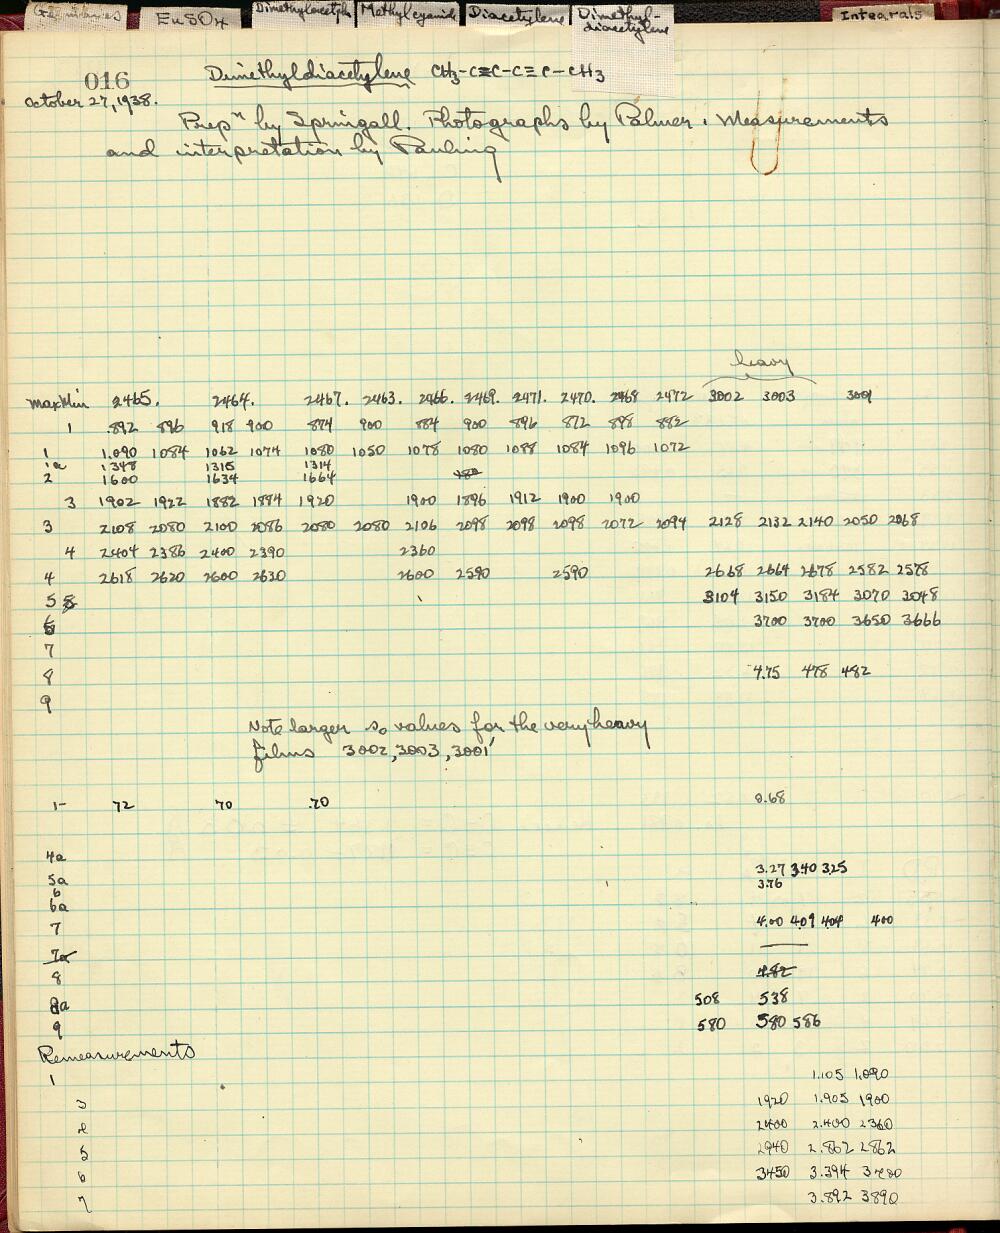 EuSO4 Dimethylacetyle Methylcyanide Diacetylene Dimethyl-diacetylene Integrals
016 Dimethyldiacetylene CH3-C≡C-C≡C-CH3
October 27, 1938.
Prepn by Springall. Photographs by Palmer. Measurements
and interpretation by Pauling
heavy
Max Min 2465. 2464. 2467. 2463. 2466. 2469. 2471. 2470. 2468 2472 3002 3003 3001
1 .892 896 918 900 874 900 884 900 896 872 898 882
1 1.090 1084 1062 1074 1080 1050 1078 1080 1088 1084 1096 1072
1a 1348 1316 1314
2 1600 1634 1664
3 1902 1922 1882 1884 1920 1900 1896 1912 1900 1900
3 2108 2080 2100 2086 2080 2080 2106 2098 2098 2098 2072 2094 2128 2132 2140 2050 2068
4 2404 2386 2400 2390 2360
4 2618 2620 2600 2630 2600 2590 2590 2668 2664 2678 2582 2578
5 3104 3150 3184 3070 3048
6 3700 3700 3650 3666
7
8 4.75 478 482
9
Note larger so values for the very heavy
films 3002, 3003, 3001
1- 72 70 .70 0.68
4a
5a 3.27 3.40 3.25
6 3.76
6a
7 4.00 4.09 404 400
7a
8 4.82
8a 508 538
9 580 580 586
Remeasurements
1 1.105 1.090
3 1920 1.905 1900
4 2400 2.400 2360
5 2940 2.862 2862
6 3450 3.394
7 3.892 3890